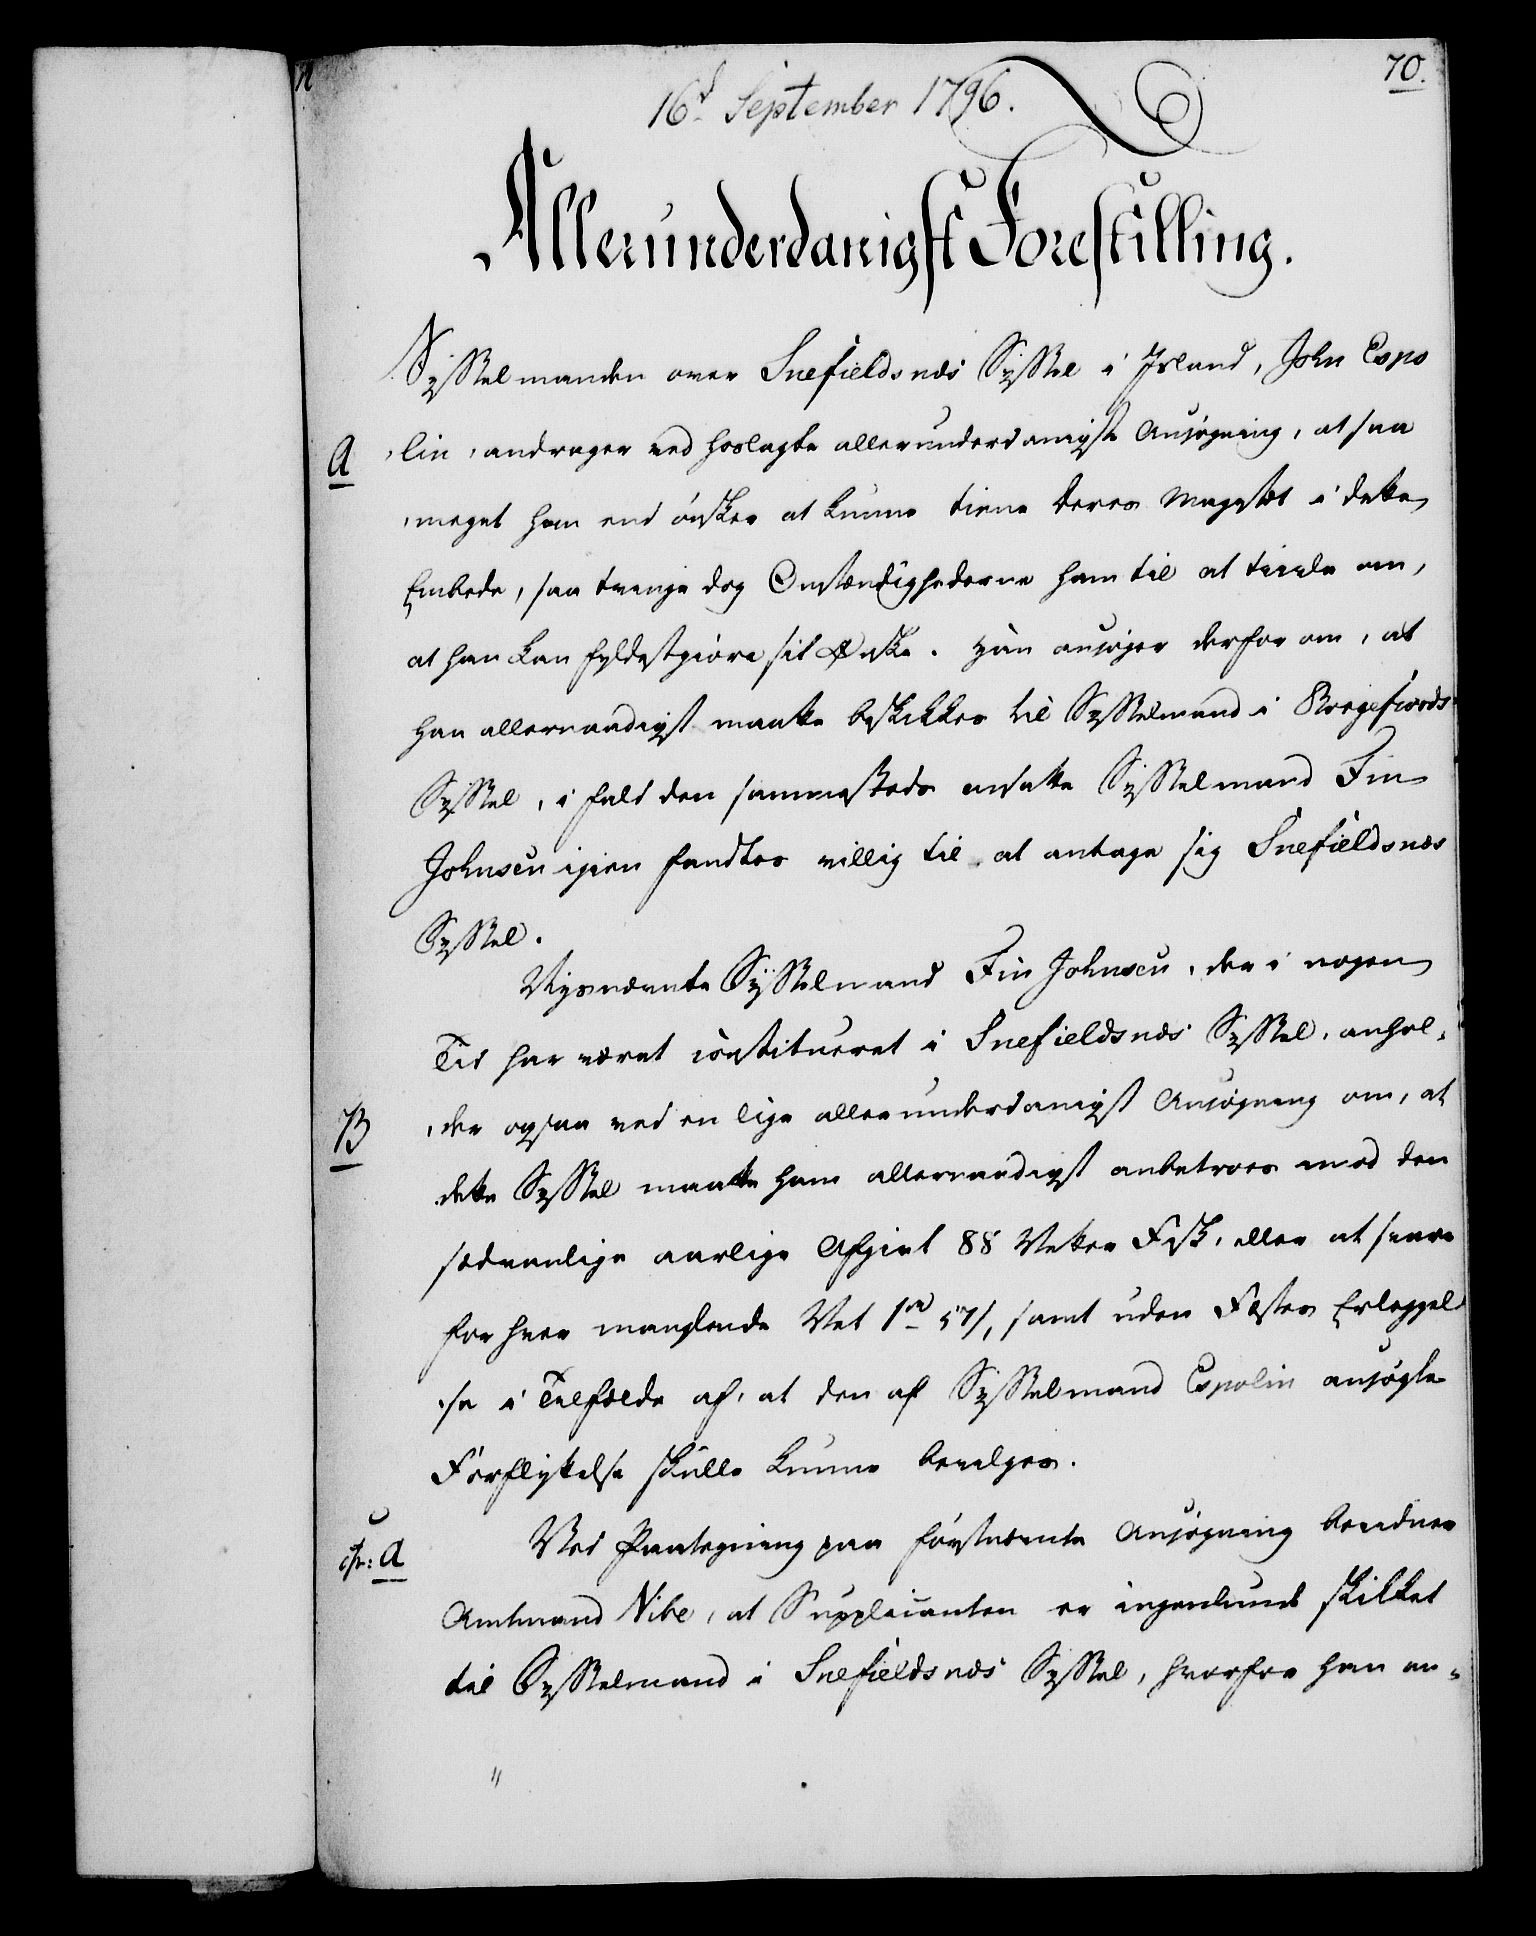 70.
16d September 1796.
Allerunderdanigst Forestilling.
Sysselmanden over Snefieldsnæs Syssel i Island, John Espo
A
lin, andrager ved hoslagte allerunderdanigste Ansøgning, at saa
meget han end ønsker at kunne tiene Deres Majestæt i dette
Embede, saa tvinge dog Omstændighederne ham til at tvivle om,
at han kan fyldestgiøre sit Ønske. Han ansøger derfor om, at
han allernaadigst maatte beskikkes til Sysselmand i Borgefiords
Syssel, i fald den sammesteds ansatte Sysselmand Fin
Johnsen igien fandtes villig til at antage sig Snefieldsnæs
Syssel.
Nysnævnte Sysselmand Fin Johnsen, der i nogen
Tid har været constitueret i Snefieldsnæs Syssel, anhol-
B
der ogsaa ved en lige allerunderdanigst Ansøgning om, at
dette Syssel maatte ham allernaadigst anbetroes mod den
sædvanlige aarlige Afgivt 88 Vetter Fisk, eller at svare
for hver manglende Vet 1rd 57s, samt uden Festes Erleggel
se i Tilfælde af, at den af Sysselmand Espolin ansøgte
Forflytelse skulle kunne bevilges.
cfr: A
Ved Paategning paa førstnævnte Ansøgning
Amtmand Vibe, at Supplicanten er ingenlunde skikket
til Sysselmand i Snefieldsnæs Syssel, hvorfor han an-
"